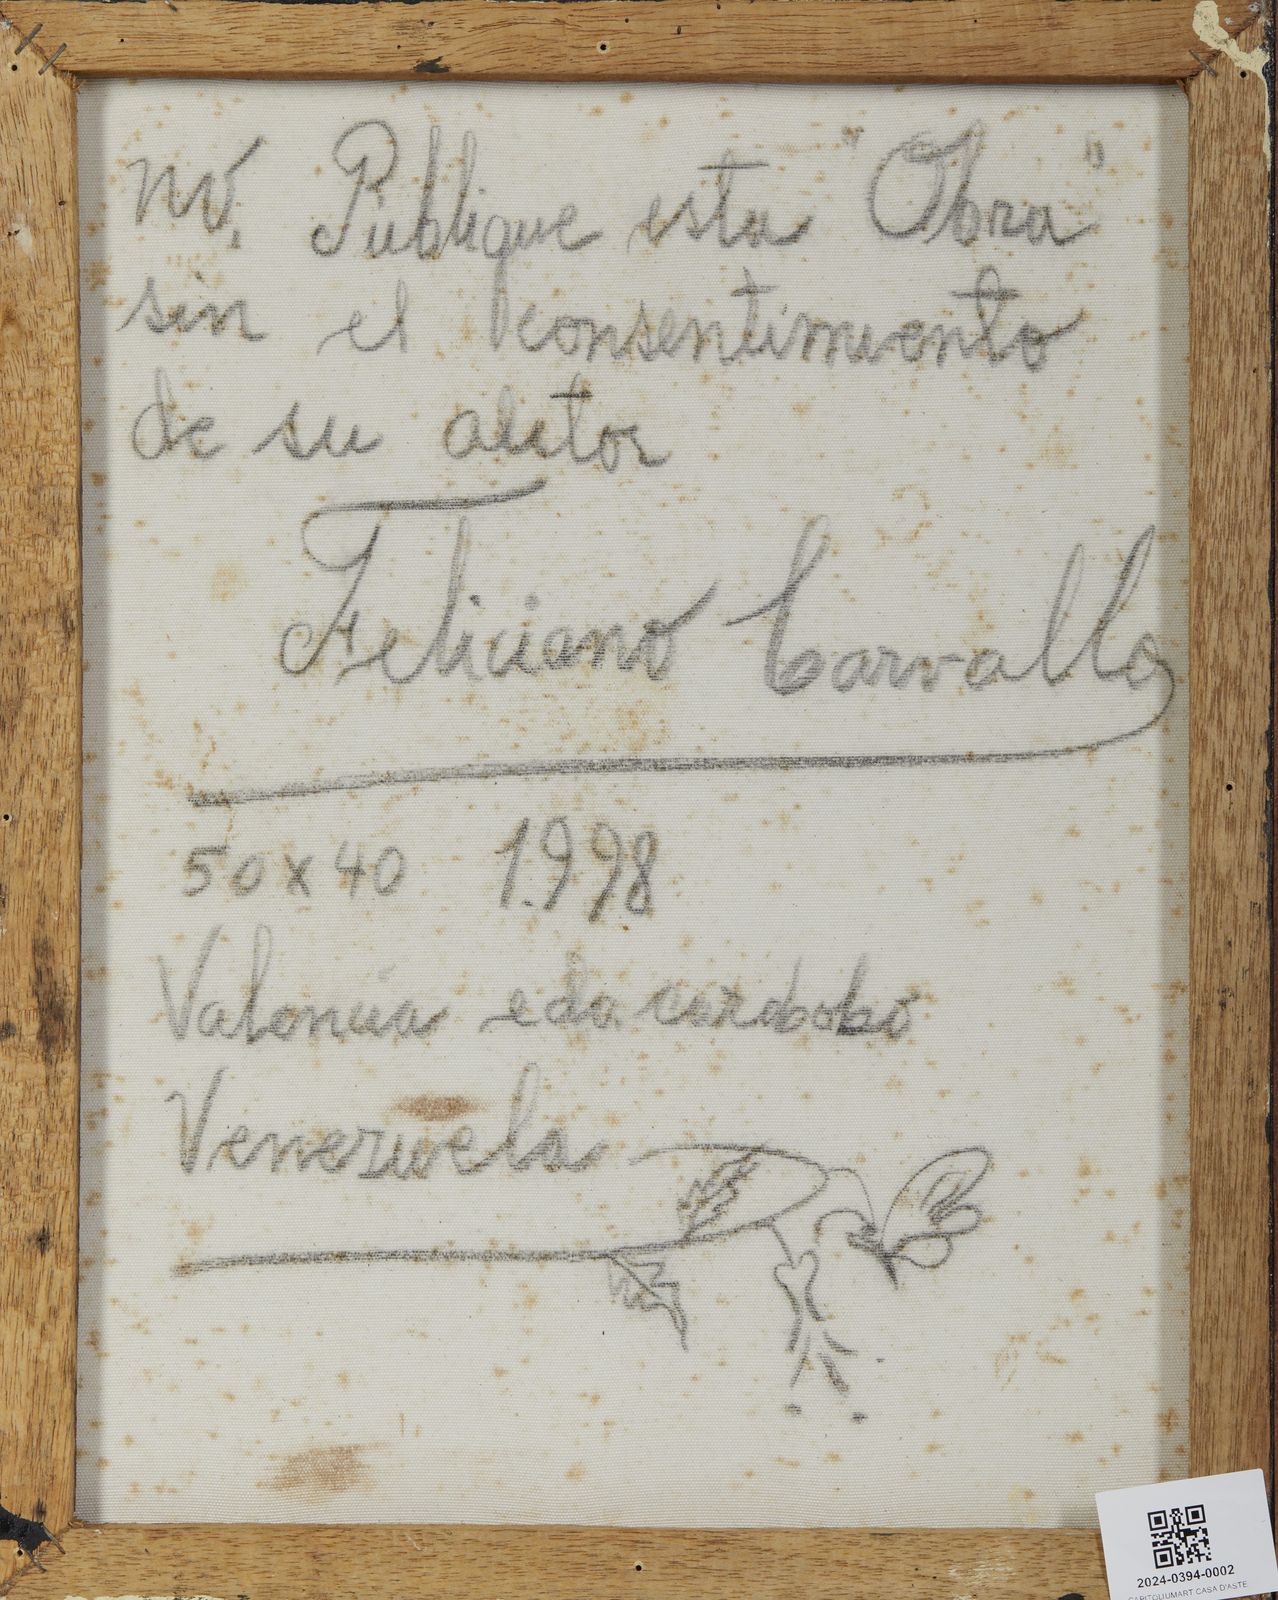 no. Publique esta "Obra"
sin el consentimiento
de su autor
Feliciano Carvallo
50x40 1.998
Valencia edo. carabobo
Venezuela
2024-0394-0002
CAPITOLIUMART CASA D'ASTE